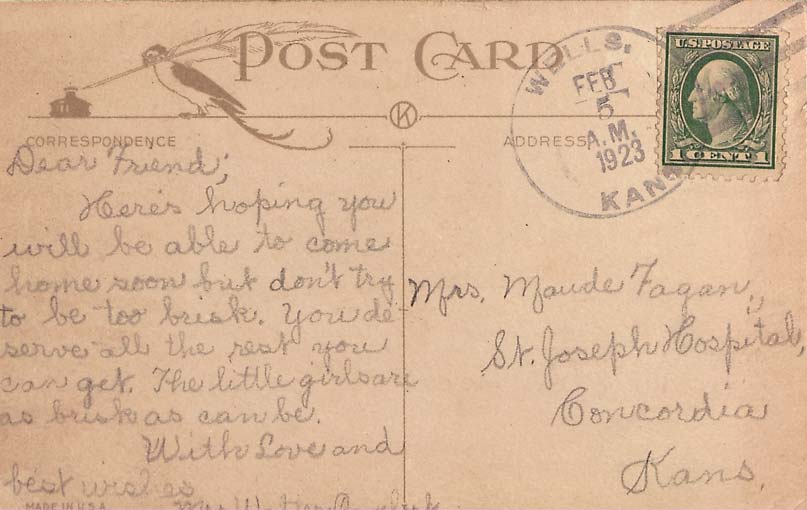 POST CARD
CORRESPONDENCE
ADDRESS
K
WELLS,
FEB
5
A.M.
1923
KANS
U.S. POSTAGE
1 CENT 1
Dear Friend;
Here's hoping you
will be able to come
home soon but don't try
to be too brisk. You de
serve all the rest you
can get. The little girls are
as brisk as can be.
With Love and
best wishes
Mrs
Mrs. Maude Fagan,
St. Joseph Hospital,
Concordia
Kans.
MADE IN U.S.A